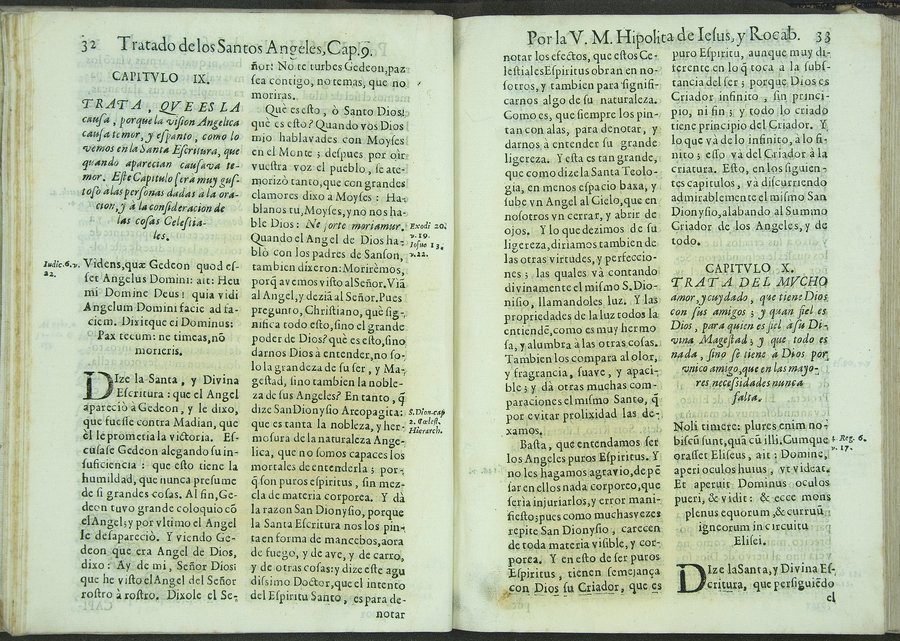 32 Tratado de los Santos Angeles, Cap. 9.
CAPITVLO IX.
TRATA, QVE ES LA
causa, porque la vision Angelica
causa temor, y espanto, como lo
vemos en la Santa Escritura, que
quando aparecian causava te-
mor. Este Capitulo serà muy gus-
toso à las personas dadas à la ora-
cion, y à la consideracion de
las cosas Celestia-
les.
Iudic. 6. v.
22.
Videns, quæ Gedeon quod es-
set Angelus Domini: ait: Heu
mi Domine Deus: quia vidi
Angelum Domini facie ad fa-
ciem. Dixitque ei Dominus:
Pax tecum: ne timeas, nō
morieris.
DIze la Santa, y Divina
Escritura: que el Angel
apareciò a Gedeon, y le dixo,
que fuesse contra Madian, que
èl le prometia la victoria. Es-
cusase Gedeon alegando su in-
suficiencia: que esto tiene la
humildad, que nunca presume
de si grandes cosas. Al fin, Ge-
deon tuvo grande coloquio cō
el Angel; y por vltimo el Angel
se desapareciò. Y viendo Ge-
deon que era Angel de Dios,
dixo: Ay de mi, Señor Dios!
que he visto el Angel del Señor
rostro à rostro. Dixole el Se-
CAPI-
ñor: No te turbes Gedeon, paz
sea contigo, no temas, que no
moriras.
Què es esto, ò Santo Dios!
què es esto? Quando vos Dios
mio hablavades con Moyses
en el Monte; despues por oìr
vuestra voz el pueblo, se ate-
morizò tanto, que con grandes
clamores dixo à Moyses: Ha-
blanos tu, Moyses, y no nos ha-
ble Dios: Ne forte moriamur.
Exodi 20.
v. 19.
Quando el Angel de Dios ha-
Iosue 13.
v. 22.
blò con los padres de Sanson,
tambien dixeron: Morirèmos,
porq̃ avemos visto al Señor. Viā
al Angel, y deziā al Señor. Pues
pregunto, Christiano, què sig-
nifica todo esto, sino el grande
poder de Dios? què es esto, sino
darnos Dios à entender, no so-
lo la grandeza de su ser, y Ma-
gestad, sino tambien la noble-
za de sus Angeles? En tanto, q̃
dize San Dionysio Areopagita:
S. Dion. cap
2. Cœlest.
Hierarch.
que es tanta la nobleza, y her-
mosura de la naturaleza Ange-
lica, que no somos capaces los
mortales de entenderla; por-
q̃ son puros espiritus, sin mez-
cla de materia corporea. Y dà
la razon San Dionysio, porque
la Santa Escritura nos los pin-
ta en forma de mancebos, aora
de fuego, y de ave, y de carro,
y de otras cosas: y dize este agu
dissimo Doctor, que el intento
del Espiritu Santo, es para de-
notar
Por la V. M. Hipolita de Iesus, y Rocab. 33
notar los efectos, que estos Ce-
lestiales Espiritus obran en no-
sotros, y tambien para signifi-
carnos algo de su naturaleza.
Como es, que siempre los pin-
tan con alas, para denotar, y
darnos à entender su grande
ligereza. Y esta es tan grande,
que como dize la Santa Teolo-
gia, en menos espacio baxa, y
sube vn Angel al Cielo, que en
nosotros vn cerrar, y abrir de
ojos. Y lo que dezimos de su
ligereza, diriamos tambien de
las otras virtudes, y perfeccio-
nes; las quales và contando
divinamente el mismo S. Dio-
nisio, llamandoles luz. Y las
propiedades de la luz todos la
entiendē, como es muy hermo
sa, y alumbra à las otras cosas.
Tambien los compara al olor,
y fragrancia, suave, y apaci-
ble; y dà otras muchas com-
paraciones el mismo Santo, q̃
por evitar prolixidad las de-
xamos.
Basta, que entendamos ser
los Angeles puros Espiritus. Y
no les hagamos agravio, de pē
sar en ellos nada corporeo, que
seria injuriarlos, y error mani-
fiesto; pues como muchas vezes
repite San Dionysio, carecen
de toda materia visible, y cor-
porea. Y en esto de ser puros
Espiritus, tienen semejança
con Dios su Criador, que es
puro Espiritu, aunque muy di-
ferente en lo q̃ toca à la subs-
tancia del ser; porque Dios es
Criador infinito, sin princi-
pio, ni fin; y todo lo criado
tiene principio del Criador. Y
lo que và de lo infinito, a lo fi-
nito; esso và del Criador à la
criatura. Esto, en los siguien-
tes capitulos, và discurriendo
admirablemente el mismo San
Dionysio, alabando al Summo
Criador de los Angeles, y de
todo.
CAPITVLO X.
TRATA DEL MVCHO
amor, y cuydado, que tiene Dios
con sus amigos; y quan fiel es
Dios, para quien es fiel à su Di-
vina Magestad; y que todo es
nada, sino se tiene à Dios por
vnico amigo, que en las mayo-
res necessidades nunca
falta.
Noli timere: plures enim no-
biscū sunt, quā cū illi, Cumque
4. Reg. 6.
v. 17.
orasset Eliseus, ait: Domine,
aperi oculos huius, vt videat.
Et aperuit Dominus oculos
pueri, & vidit: & ecce mons
plenus equorum, & curruū
igneorum in circuitu
Elisei.
DIze la Santa, y Divina Es-
critura, que persiguiēdo
el